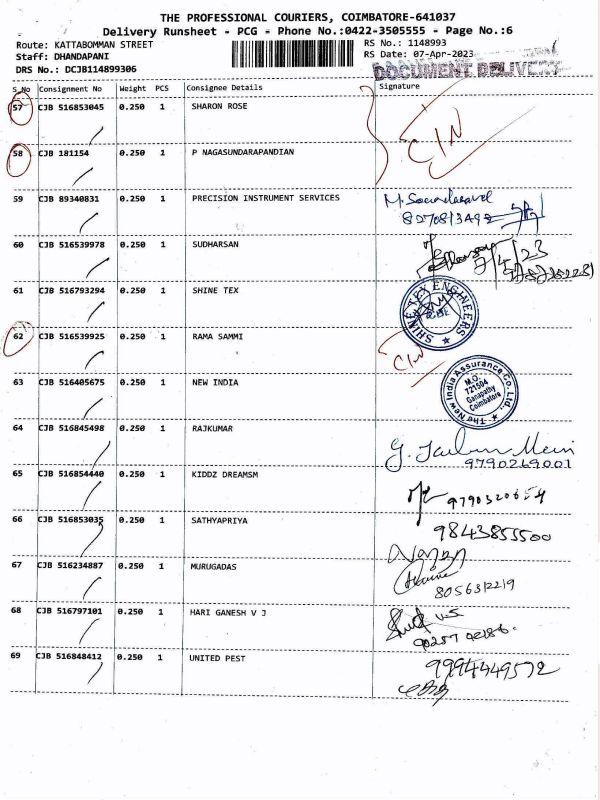 THE PROFESSIONAL COURIERS, COIMBATORE-641037
Delivery Runsheet - PCG - Phone No.:0422-3505555 - Page No.:6
Route: KATTABOMMAN STREET RS No.: 1148993
Staff: DHANDAPANI RS Date: 07-Apr-2023
DRS No.: DCJB114899306
DOCUMENT DELIVERY
S_No Consignment No Weight PCS Consignee Details Signature
57 CJB 516853045 0.250 1 SHARON ROSE
CIN
58 CJB 181154 0.250 1 P NAGASUNDARAPANDIAN
59 CJB 89340831 0.250 1 PRECISION INSTRUMENT SERVICES
8270813492
60 CJB 516539978 0.250 1 SUDHARSAN
7/4/23
61 CJB 516793294 0.250 1 SHINE TEX
SHINE TEX ENGINEERS
62 CJB 516539925 0.250 1 RAMA SAMMI CIN
63 CJB 516405675 0.250 1 NEW INDIA
The New India Assurance Co. Ltd.,
M.O.
721504
Ganapathy
Coimbatore
64 CJB 516845498 0.250 1 RAJKUMAR
9790269001
65 CJB 516854440 0.250 1 KIDDZ DREAMSM
9790320654
66 CJB 516853035 0.250 1 SATHYAPRIYA 9843855500
67 CJB 516234887 0.250 1 MURUGADAS
8056312219
68 CJB 516797101 0.250 1 HARI GANESH V J
69 CJB 516848412 0.250 1 UNITED PEST 9994449572